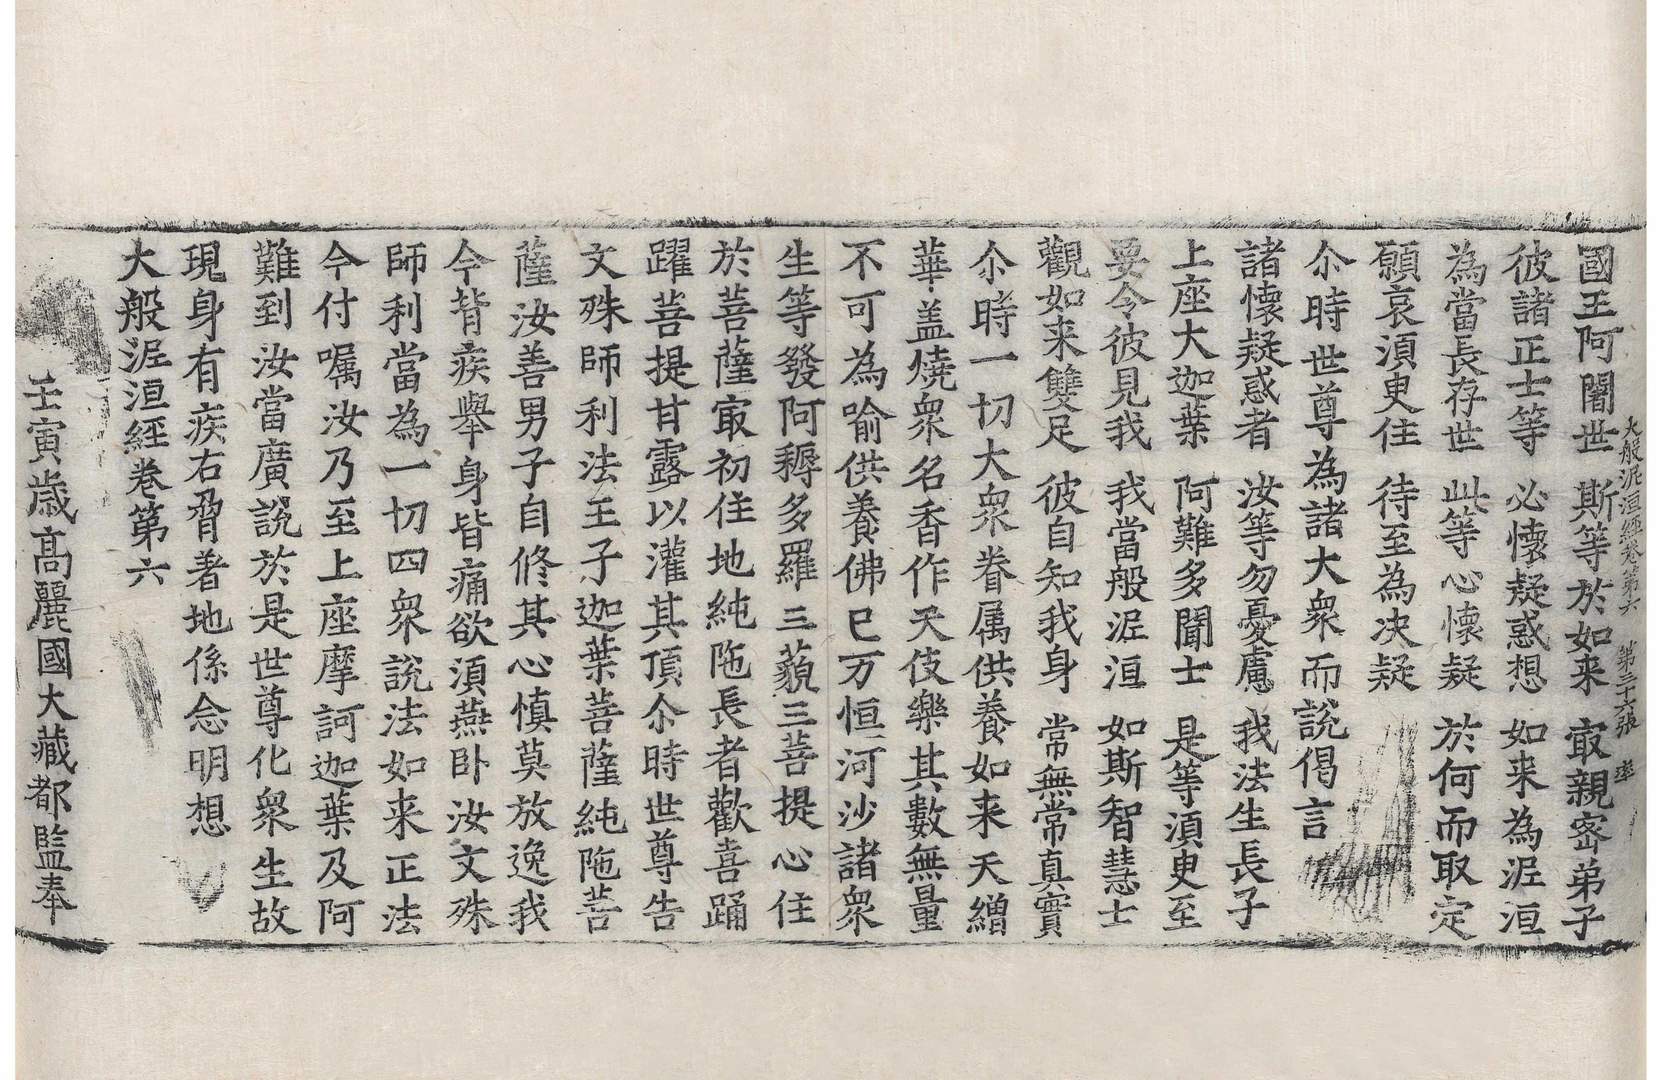 大般泥洹經卷第六　第三十六張　率
國王阿闍世　斯等於如来　㝡親宻弟子
彼諸正士等　必懷疑惑想　如来為泥洹
為當長存世　此等心懷疑　於何而取定
願哀湏臾住　待至為决疑
尒時世尊為諸大衆而說偈言
諸懷疑惑者　汝等勿憂慮　我法生長子
上座大迦葉　阿難多聞士　是等湏臾至
要令彼見我　我當般泥洹　如斯智慧士
觀如来雙足　彼自知我身　常無常真實
尒時一切大衆眷属供養如来天繒
華盖燒衆名香作天伎樂其數無量
不可為喻供養佛已万恒河沙諸衆
生等發阿耨多羅三藐三菩提心住
於菩薩㝡初住地純陁長者歡喜踊
躍菩提甘露以灌其頂尒時世尊告
文殊師利法王子迦葉菩薩純陁菩
薩汝善男子自修其心慎莫放逸我
今背疾舉身皆痛欲湏燕卧汝文殊
師利當為一切四衆說法如来正法
今付囑汝乃至上座摩訶迦葉及阿
難到汝當廣說於是世尊化衆生故
現身有疾右脅著地係念明想
大般泥洹經卷第六
壬寅歳髙麗國大藏都監奉